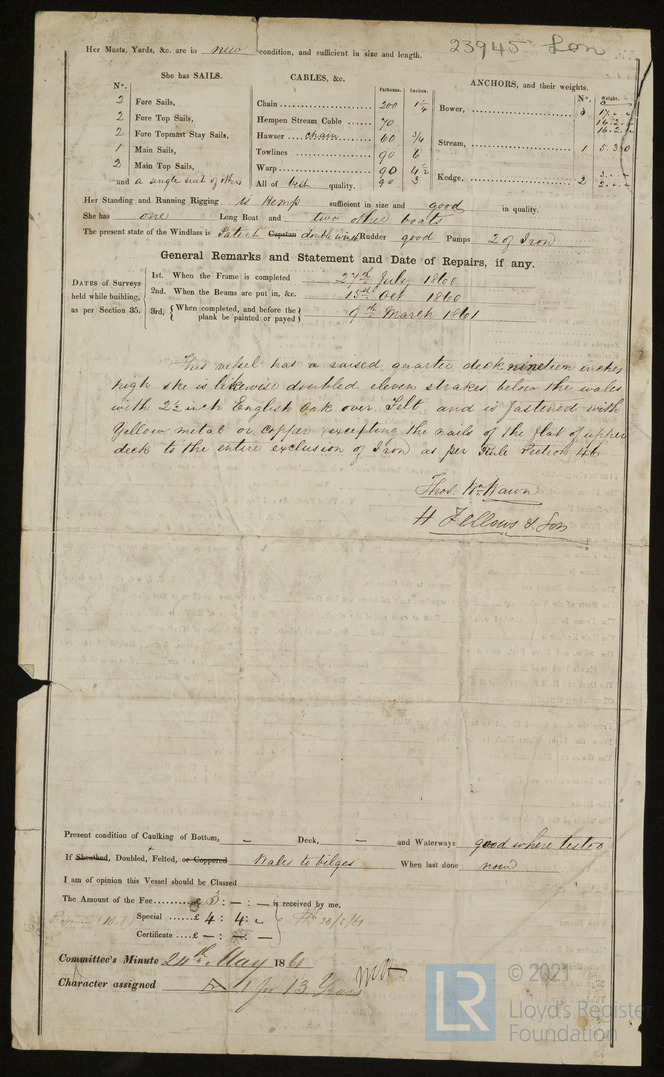 23945 Lon
Her Masts, Yards, &c. are in new condition, and sufficient in size and length.
She has SAILS.
CABLES, &c.
ANCHORS, and their weights.
N°.
Fathoms.
Inches.
N°.
Weight.
2 Fore Sails,
Chain 200 1¼
Bower, 3
2 Fore Top Sails,
Hempen Stream Cable 70
16.2.
2 Fore Topmast Stay Sails,
Hawser chain 60 ¾
16.2.
1 Main Sails,
Towlines 90 6
Stream, 1 5.3.0
2 Main Top Sails,
Warp 90 4½
and a single suit of others
All of best quality. 90 3
Kedge, 2
Her Standing and Running Rigging is Hemp sufficient in size and good in quality.
She has one Long Boat and two other boats
The present state of the Windlass is Patent Capstan double winch Rudder good Pumps 2 of Iron
General Remarks and Statement and Date of Repairs, if any.
DATES of Surveys held while building, as per Section 35.
1st. When the Frame is completed 27th July 1860
2nd. When the Beams are put in, &c. 15th Oct 1860
3rd, When completed, and before the plank be painted or payed 9th March 1861
This vessel has a raised quarter deck nineteen inches
high she is likewise doubled eleven strakes below the wales
with 2½ inch English Oak over Felt and is fastened with
Yellow metal or copper excepting the nails of the flat of upper
deck to the entire exclusion of Iron as per Rule Section 46
Thos. Wm. Wawn
H Fellows & Son
Present condition of Caulking of Bottom, – Deck, – and Waterways good where tested
If Sheathed, Doubled, Felted, or Coppered Wales to bilges When last done now
I am of opinion this Vessel should be Classed
The Amount of the Fee £ 5 : – : – is received by me,
Special £ 4 : 4 : –
Certificate £ – : – : –
Committee's Minute 24th May 1861
Character assigned A 1 for 13 Years
LR
© 2021
Lloyd's Register
Foundation